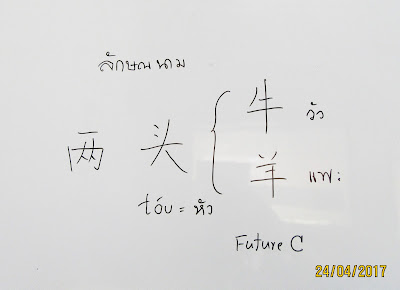 ลักษณนาม
两 头 { 牛 วัว
羊 แพะ
tóu = หัว
Future C
24/04/2017